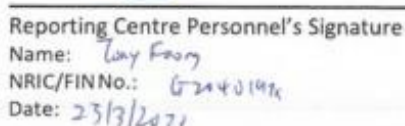 Reporting Centre Personnel's Signature
Name:
NRIC/FIN No.:
Date: 23/3/2021